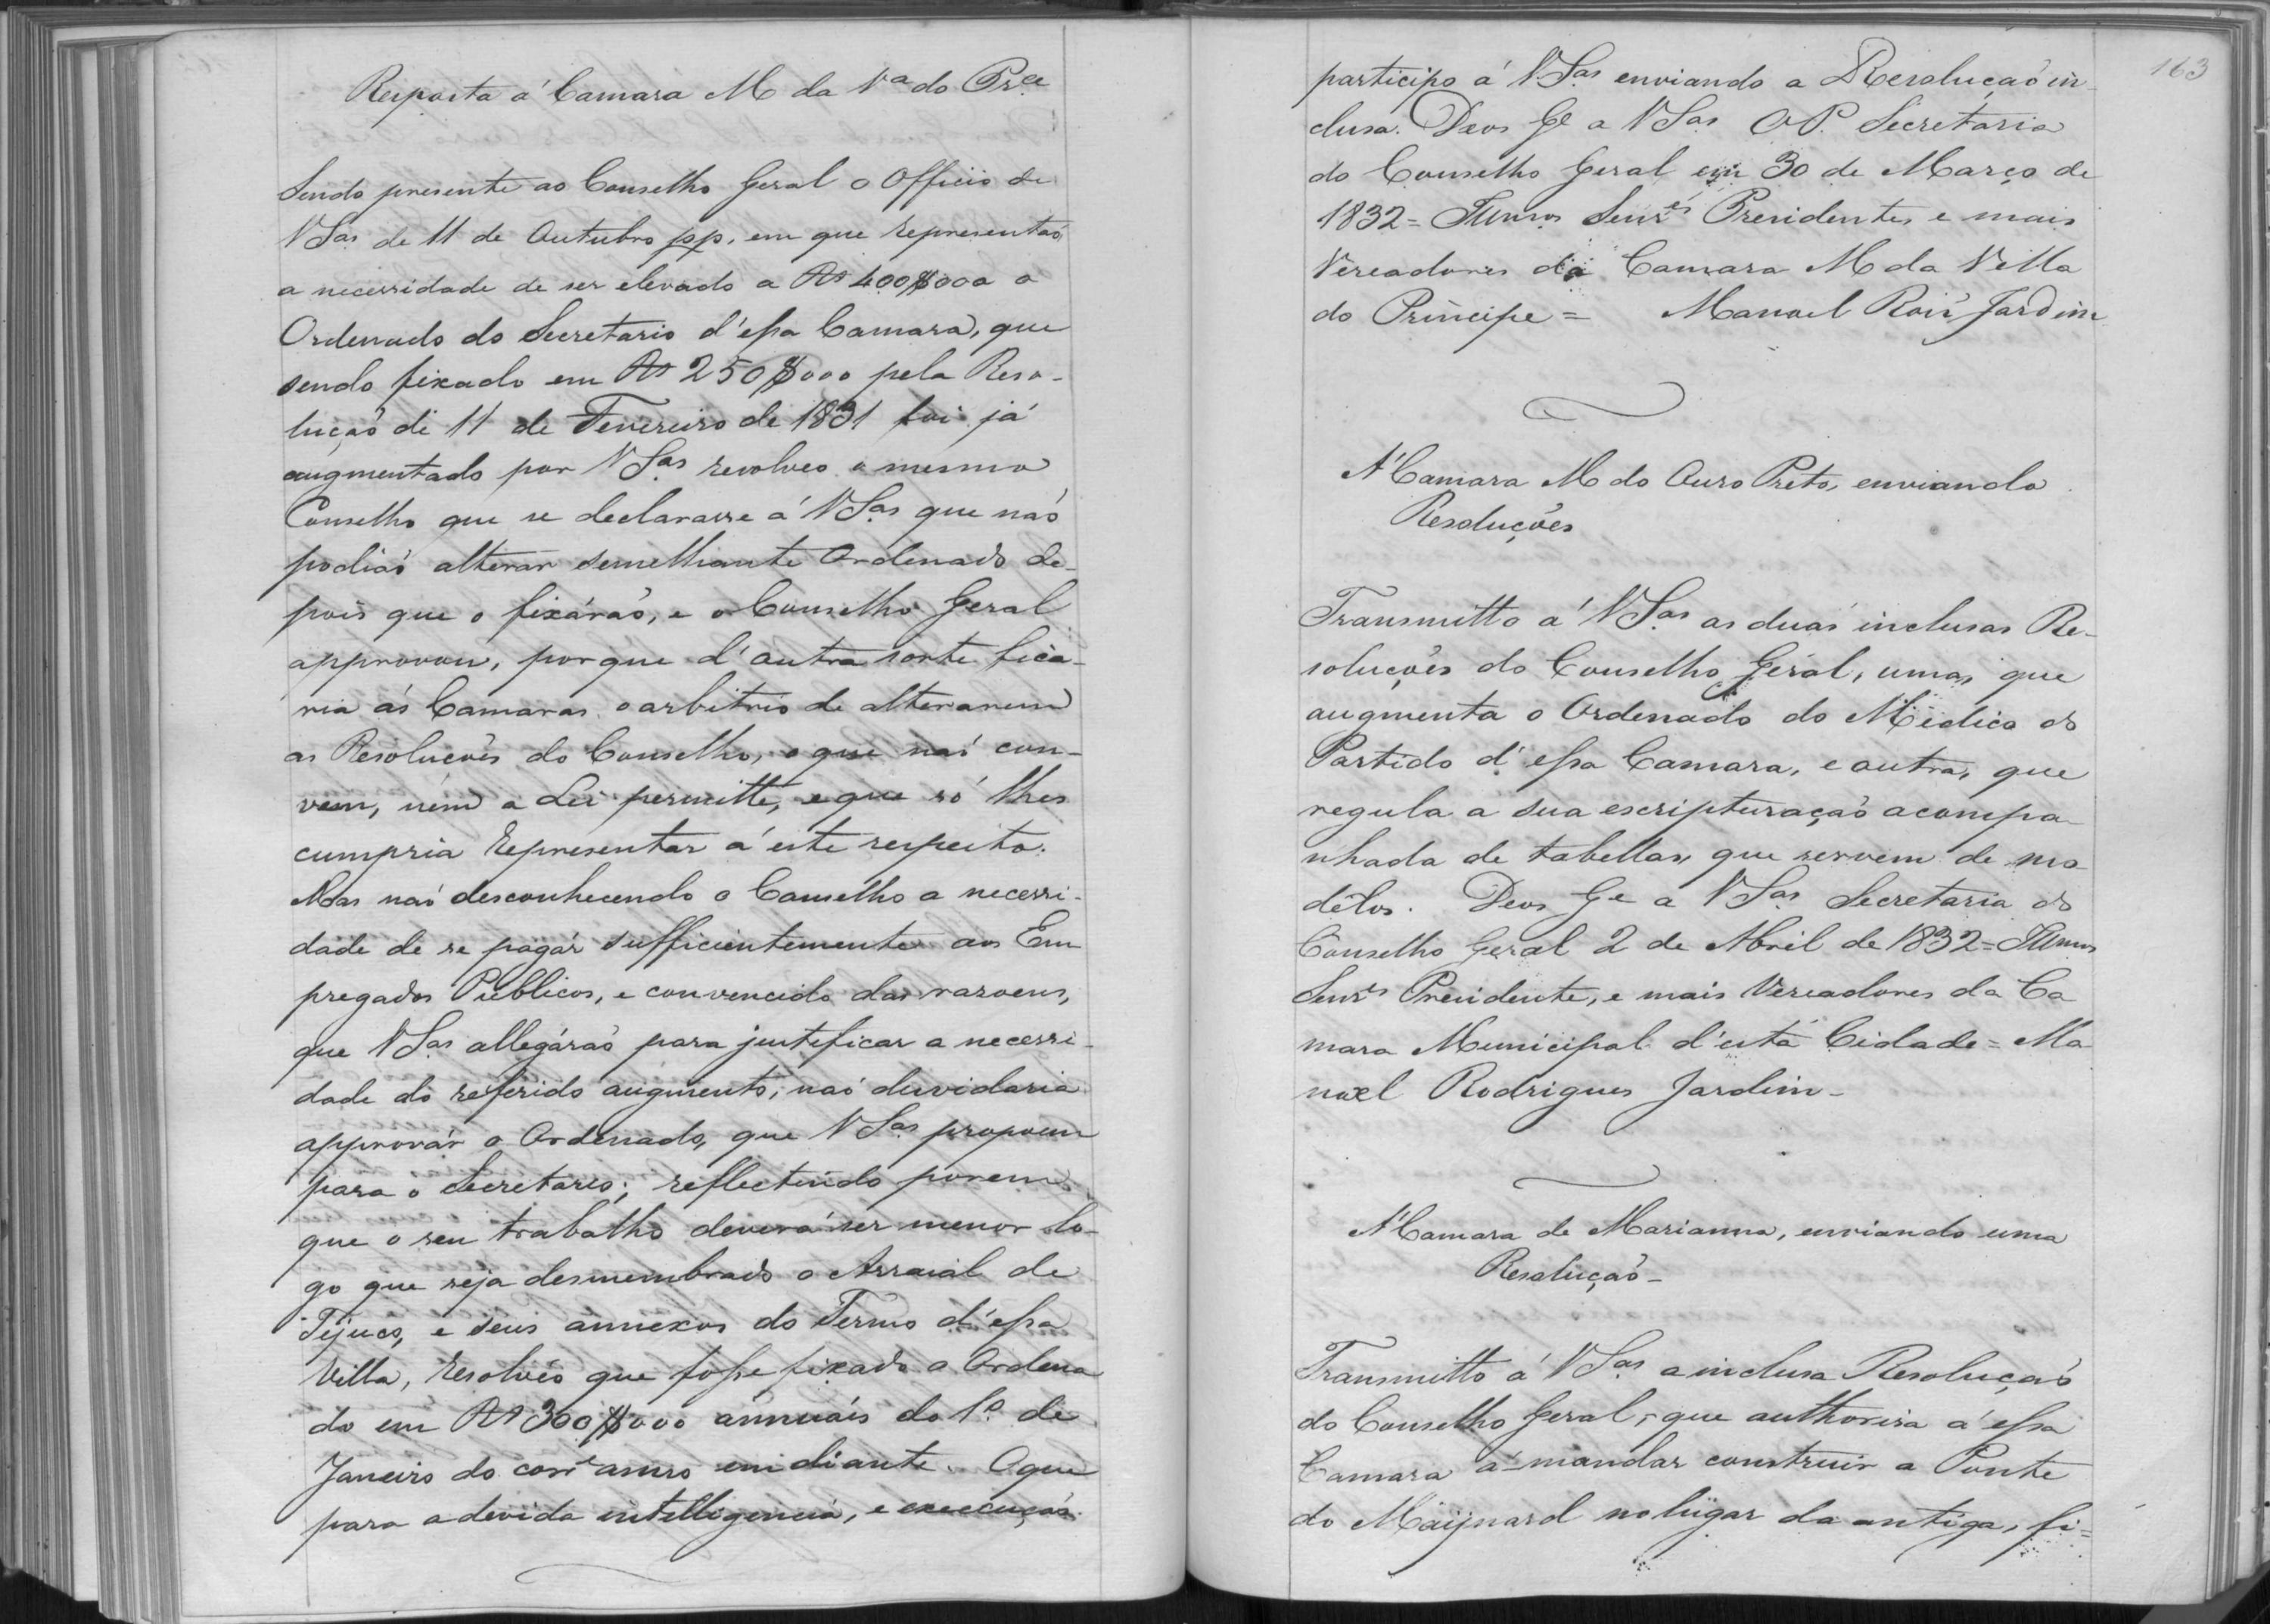 Resposta á Camara M da Vª do Prce
Sendo presente ao Conselho Geral o Officio de
VSas de 11 de Outubro pp. em que representaõ
a necessidade de ser elevado a Rs 400$000 o
Ordenado do Secretario d'essa Camara, que
sendo fixado em Rs 250$000 pela Reso-
luçaõ de 11 de Fevereiro de 1831 foi já
augmentado por VSas resolveo o mesmo
Conselho que se declarasse á VSas que naõ
podiaõ alterar semelhante Ordenado de-
pois que o fixáraõ, e o Conselho Geral
approvou, porque d'outra sorte fica-
ria ás Camaras o arbitrio de alterarem
as Resoluçoẽs do Conselho, o que naõ con-
vem, nem a Lei permitte, e que só lhes
cumpria representar á este respeito.
Mas naõ desconhecendo o Conselho a necessi-
dade de se pagar sufficientemente aos Em
pregados Publicos, e convencido das razoens,
que VSas allegáraõ para justificar a necessi-
dade do referido augmento, naõ duvidaria
approvár o Ordenado, que VSas propoem
para o Secretario; reflectindo porem
que o seu trabalho deverá ser menor lo-
go que seja desmembrado o Arraial de
Tejuco, e seus annexos do Termo d'essa
Villa, resolveo que fosse fixado o Ordena
do em Rs 300$000 annuáis do 1º de
Janeiro do corre anno em diante. O que
para a devida intelligencia, e execuçaõ
163
participo á VSas enviando a Resoluçaõ in-
clusa. Deos Ge a VSas OP. Secretaria
do Conselho Geral em 30 de Março de
1832 = Illmos Senres Presidentes e mais
Vereadores da Camara M da Villa
do Principe = Manoel Roiz Jardim
A' Camara M do Ouro Preto, enviando
Resoluçoẽs
Transmitto á VSas as duas inclusas Re-
soluçoẽs do Conselho Geral, uma, que
augmenta o Ordenado do Medico do
Partido d'essa Camara, e outra, que
regula a sua escripturaçaõ acompa
nhada de tabellas, que servem de mo-
delos. Deos Ge a VSas Secretaria do
Conselho Geral 2 de Abril de 1832 = Illmos
Senrs Presidente, e mais Vereadores da Ca
mara Municipal d'esta Cidade = Ma
noel Rodrigues Jardim -
A' Camara de Marianna, enviando uma
Resoluçaõ -
Transmitto á VSas a inclusa Resoluçaõ
do Conselho Geral, que authorisa á essa
Camara á mandar construir a Ponte
do Maijnard no lugar da antiga, fi=